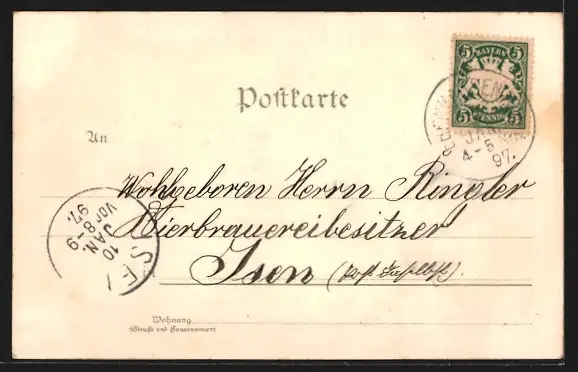 5 BAYERN 5
5 PFENNIG 5
Postkarte
JAN.
4-5
97.
An
Wohlgeboren Herrn Ringler
Bierbrauereibesitzer
Isen
ISEN
10
JAN.
Vor 8-9
97.
Wohnung
(Straße und Hausnummer)